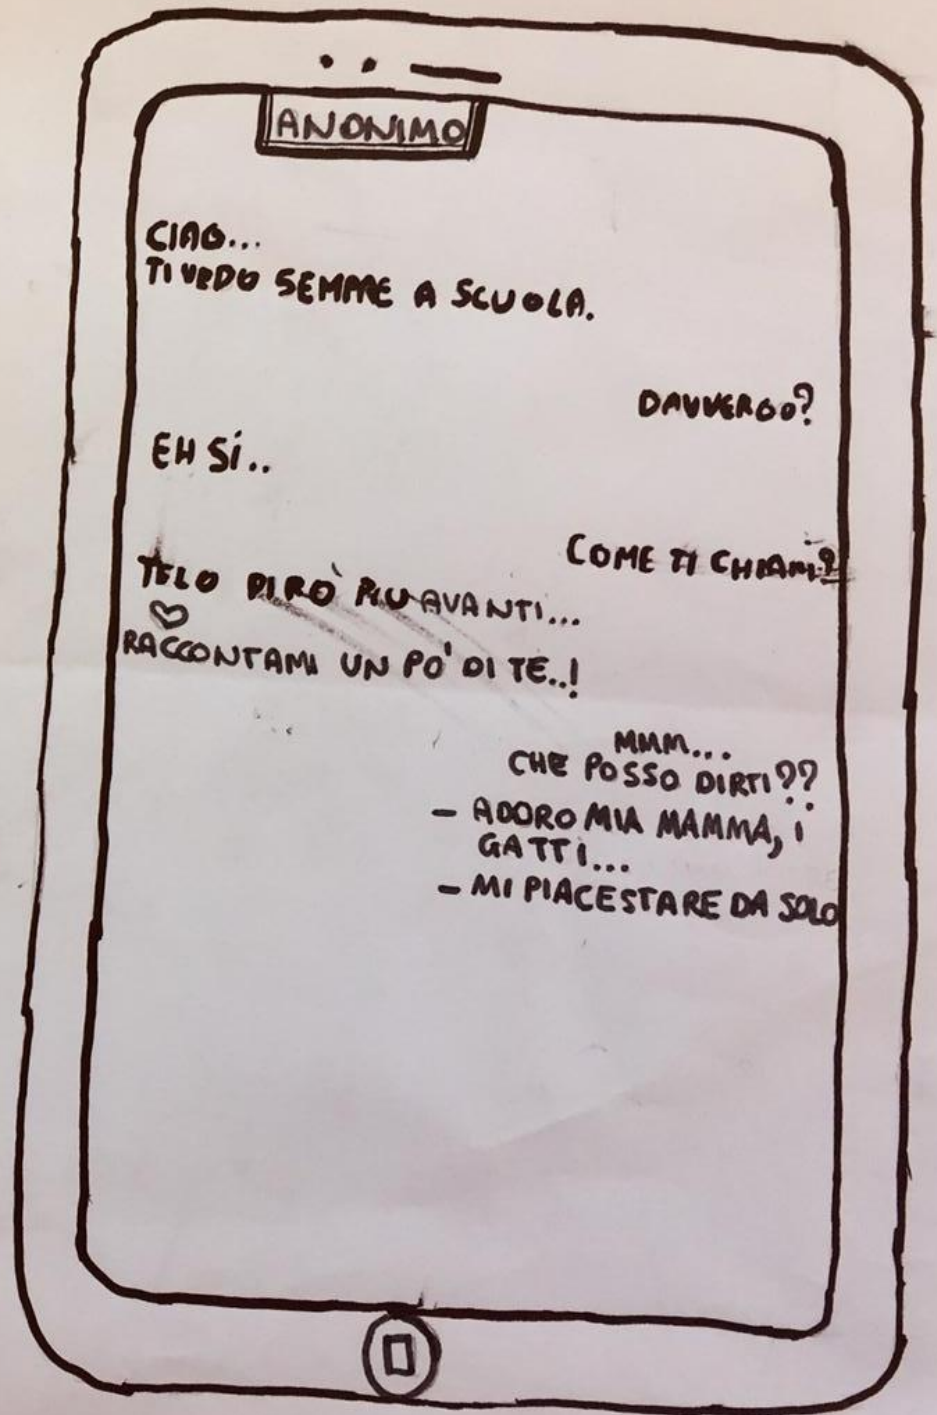 ANONIMO
CIAO...
TI VEDO SEMPRE A SCUOLA.
DAVVEROO?
EH SÍ..
COME TI CHIAMI?
TELO DIRÒ PIU AVANTI...
♡
RACCONTAMI UN PO' DI TE..!
MMM...
CHE POSSO DIRTI??
- ADORO MIA MAMMA, i
GATTI...
- MI PIACE STARE DA SOLO